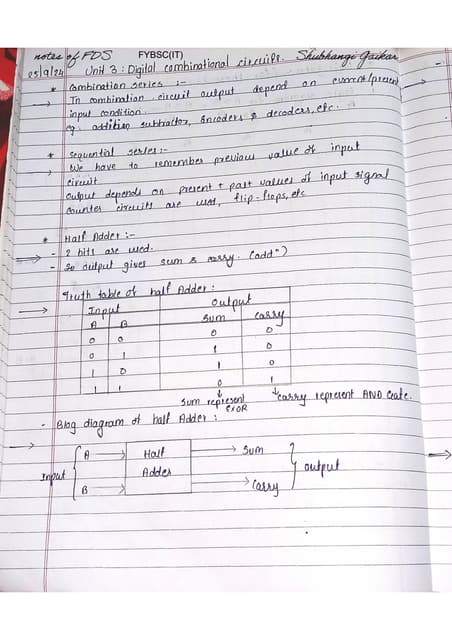 notes of FDS FYBSC(IT) Shubhangi Gaikar
25/9/24 Unit 3 : Digital combinational circuits.
* Combination series :-
→ In combination circuit output depend on current/present
input condition.
eg. addition subtractor, Encoders & decoders, etc.
* Sequential series :-
→ We have to remember previous value of input
circuit
output depends on present + past values of input signal
counter circuits are used, flip-flops, etc
* Half Adder :-
- 2 bits are used.
- So output gives sum & carry. (addⁿ)
Truth table of half Adder :
Input Output
A B Sum Carry
0 0 0 0
0 1 1 0
1 0 1 0
1 1 0 1
↓ Sum represent EXOR
↓ carry represent AND Gate.
- Blog diagram of half Adder :
Input { A → Half Adder → Sum } output
B → → Carry